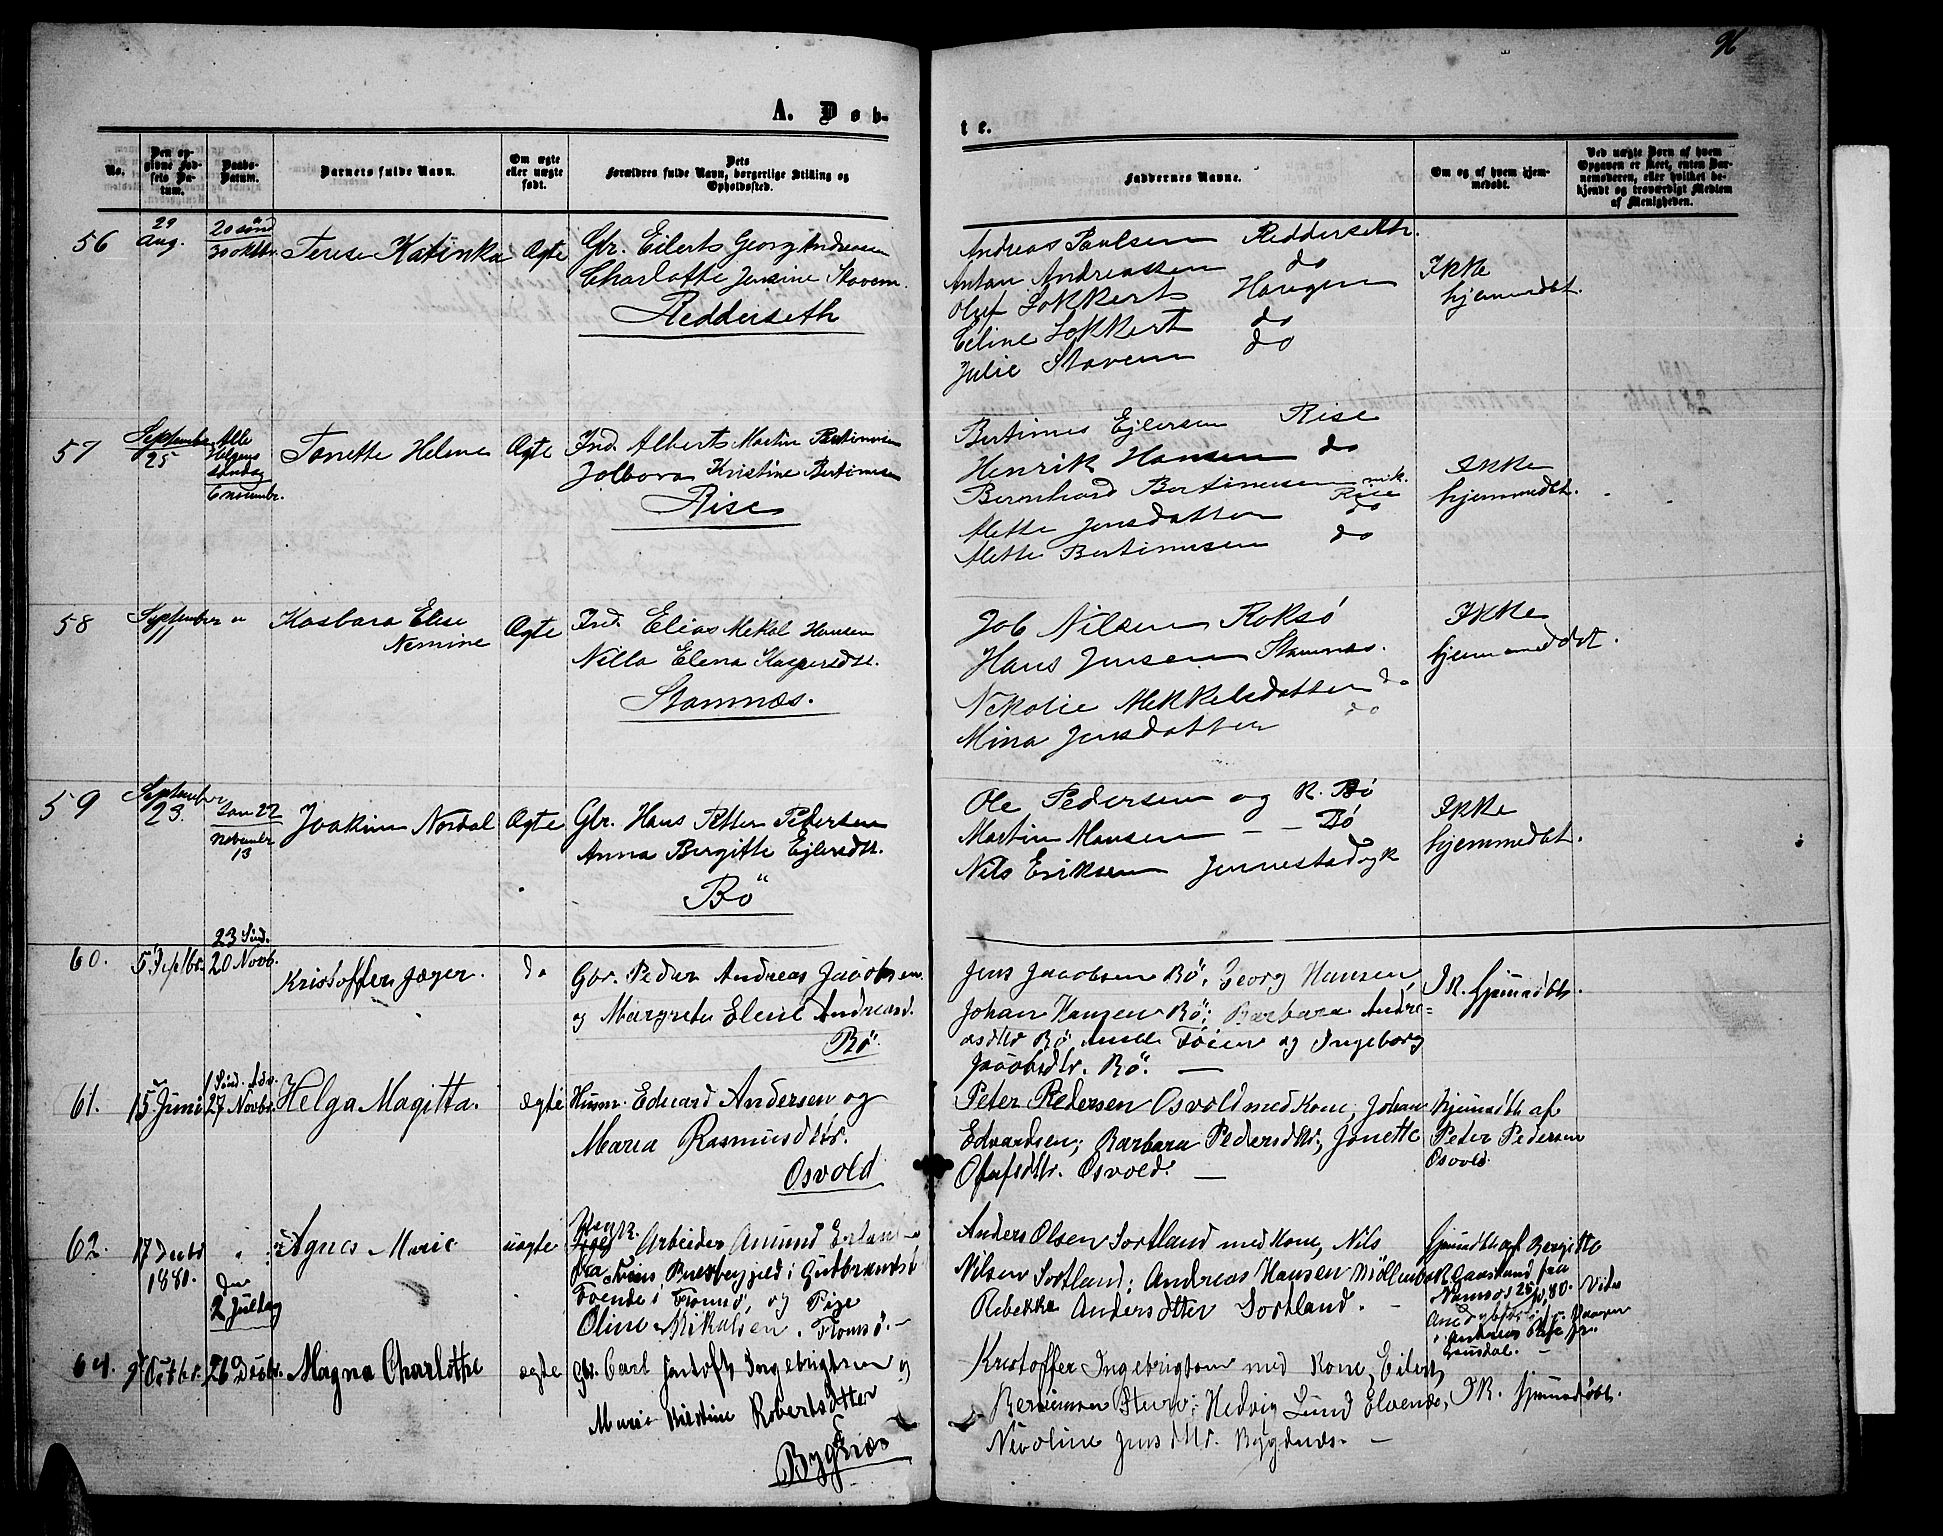 96
A. Døb-
te.
No.
Den op-
givne Fød-
sels Da-
tum.
Daabs-
Datum.
Barnets fulde Navn.
Om ægte
eller uægte
født.
Dets
Forældres fulde Navn, borgerlige Stilling og
Opholdssted.
Faddernes Navne.
Om og af hvem hjem-
medøbt.
Ved uægte Børn af hvem
Opgaven er skeet, enten Bar-
nemoderen, eller hvilket be-
kjendt og troværdigt Medlem
af Menigheden.
56
29
Aug.
20 sönd
30 oktbr.
Terese Katinka
Ægte
Gbr. Eilerts Georg Andreasen
Charlotte Jensine Stavem.
Redderseth
Andreas Paulsen Reddersethr.
Antan Andreassen do
Oluf Lokkerts Haugen
Celine Lokkert do
Julie Stavem do
Ikke
hjemmedøbt.
57
September
25
Alle
Helgens
söndag
6 novembr.
Tanette Helene
Ægte
Ind. Alberts Martin Bertinusen
Jolbora Kristine Bertinusen
Rise
Bertines Ejlersen Rise
Henrik Hansen do
Bernhard Bertinusen mik.
Rise
Mette Jensdatter do
Mette Bertinusen do
Ikke
hjemmedøbt.
58
September
11
"
Kasbara Elise
Nemine
Ægte
Ind. Elias Mekal Hansen
Nilla Elena Kaspersdtt.
Stamnæs.
Job Nilsen Roksö
Hans Jensen Stamnæs.
Nikolie Mekkelsdatter do
Mina Jensdatter do
Ikke
hjemmedøbt.
59
September
23.
San 22
November
13
Joakim Nordal
Ægte
Gbr. Hans Petter Pedersen
Anna Birgitte Ejlersdtt.
Bö
Ole Pedersen og K. Bö
Martin Hansen - - Bö
Nils Eriksen Jennestad yk
Ikke
hjemmedøbt.
60.
5 Septbr.
23 Sönd.
20 Novb.
Kristoffer Jæger.
do
Gbr. Peder Andreas Jacobsen
og Margrete Elene Andreasd.
Bö.
Jens Jacobsen Bö, Georg Hansen,
Johan Hansen Bö; Barbara Andre=
asdtr Bö, Töien og Ingeborg
Jacobsdtr. Bö. —
Ik. hjemmdöbt.
61.
15 Juni
1 Sönd. Adv.
27 Novbr.
Helga Magitta.
ægte
Husm. Edvard Andersen og
Maria Rasmusdtr.
Osvold
Peter Pedersen Osvold med Kone, Johan
Edvardsen; Barbara Pedersdtr., Jonette
Olufsdtr. Osvold. —
Hjemdöbt af
Peter Pedersen
Osvold.
62.
17 Decbr
1880.
"
Den
2 Juledag
Agnes Marie
uægte
Ungk. Arbeider Amund
fra i Gudbrandsd.
boende i Tromsö, og Pige
Oline Mikalsen. Tromsö. —
Anders Olsen Sortland med Kone, Nils
Nilsen Sortland; Andreas Hansen
Rebekka Andersdtter Sortland. —
Hjemdöbt af Bergitte
fra
Namsos 25/12 80. Vidn
64.
9 Octbr.
26 Decbr.
Magna Charlotte
ægte
Gbr. Carl Ingebrigtsen og
Marie Kirstine Robertsdtter
Bygnæs
Kristoffer Ingebrigtsen med Kone, Eilert
Hedvig Lund
Nicoline Jensdtr. Bygdnæs. —
Ik. hjemmdöbt.